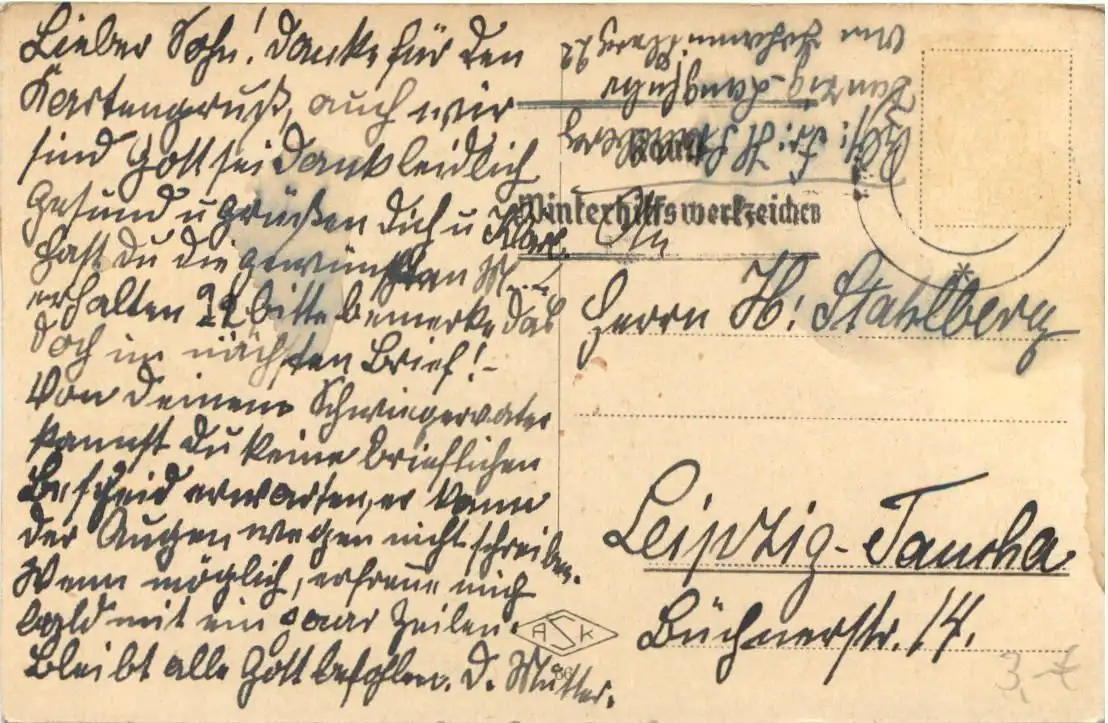 Lieber Sohn! Danke für den
Kartengruß, auch wir
sind Gott sei Dank leidlich
gesund u grüßen Dich u
hast du die gewünschten
erhalten ?? bitte bemerke das
doch im nächsten Brief!-
Von Deinem Schwiegervater
kannst Du keine brieflichen
Bescheid erwarten, er kann
der Augen wegen nicht schreiben.
Wenn möglich, erfreue mich
bald mit ein paar Zeilen.
Bleibt alle Gott befohlen. D. Mutter.
Danzig-Langfuhr
Winterhilfswerkzeichen
An
Herrn H. Stahlberg
Leipzig-Taucha
Büchnerstr. 14.
ASK
3,-